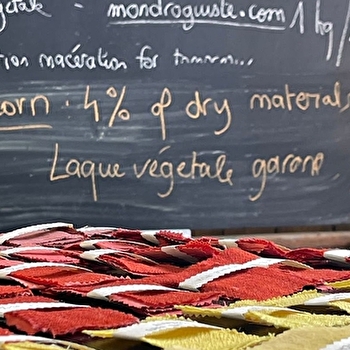 végétale - mondroguiste.com 1 kg/
macération for
corn . 4% of dry materials
Laque végétale garance